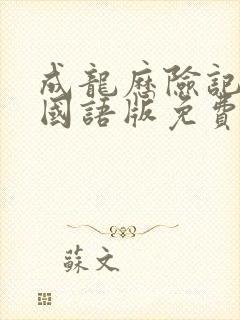 成龍歷險記
國語版免費
蘇文